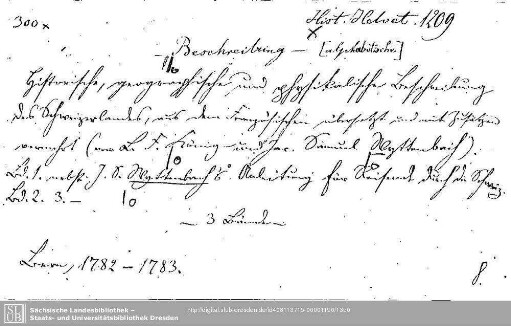 300x
Hist. Helvet. 1209
— Beschreibung —
Historische, geographische und physikalische Beschreibung
des Schweizerlandes, aus dem Französischen übersetzt und mit Zusätzen
vermehrt (von B. F. König und Jac. Samuel Wyttenbach).
Bd. 1. nebst J. S. Wyttenbach's Anleitung für Reisende durch die Schweiz.
Bd. 2. 3. —
— 3 Bände —
Bern, 1782 – 1783.
8.
SLUB
Sächsische Landesbibliothek –
Staats- und Universitätsbibliothek Dresden